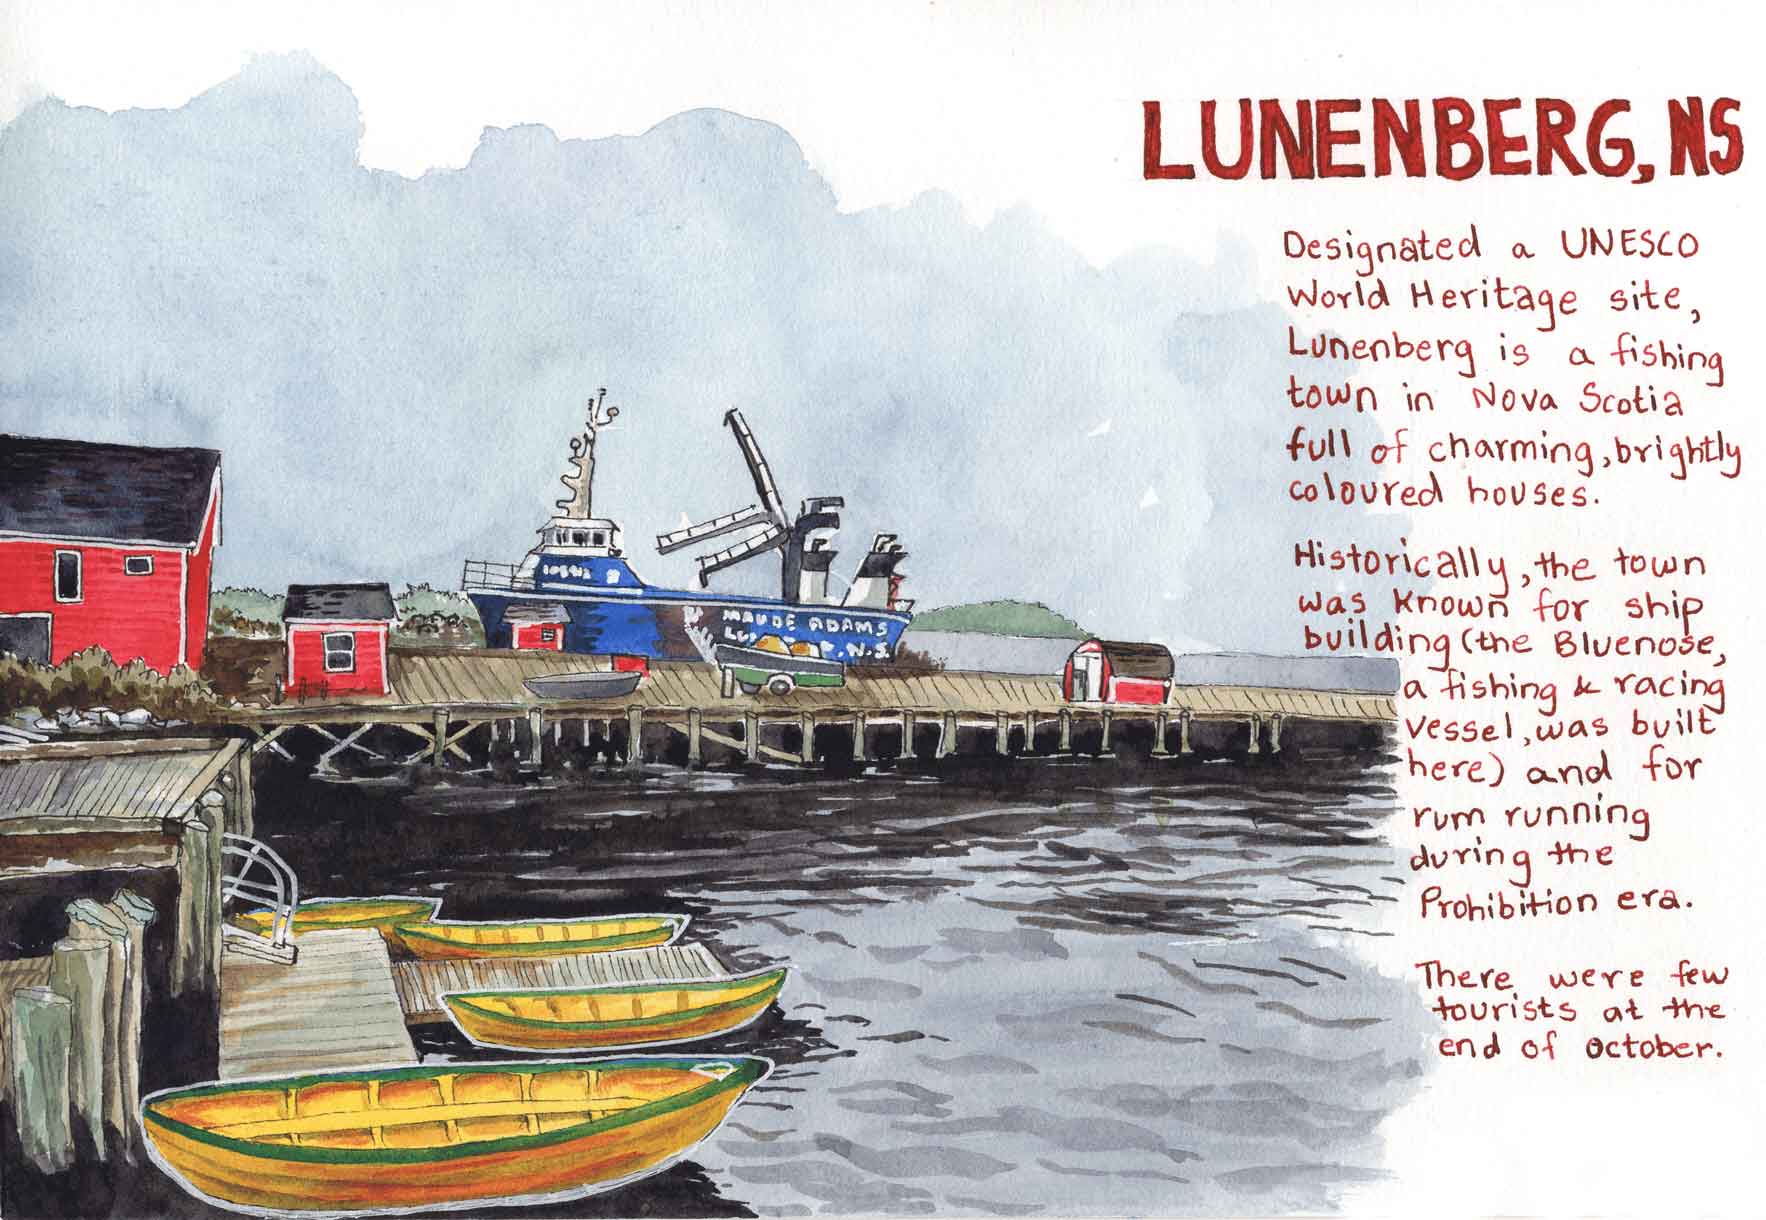 LUNENBERG, NS
Designated a UNESCO
World Heritage site,
Lunenberg is a fishing
town in Nova Scotia
full of charming, brightly
coloured houses.
Historically, the town
was known for ship
building (the Bluenose,
a fishing & racing
vessel, was built
here) and for
rum running
during the
Prohibition era.
There were few
tourists at the
end of October.
MAUDE ADAMS
N.S.